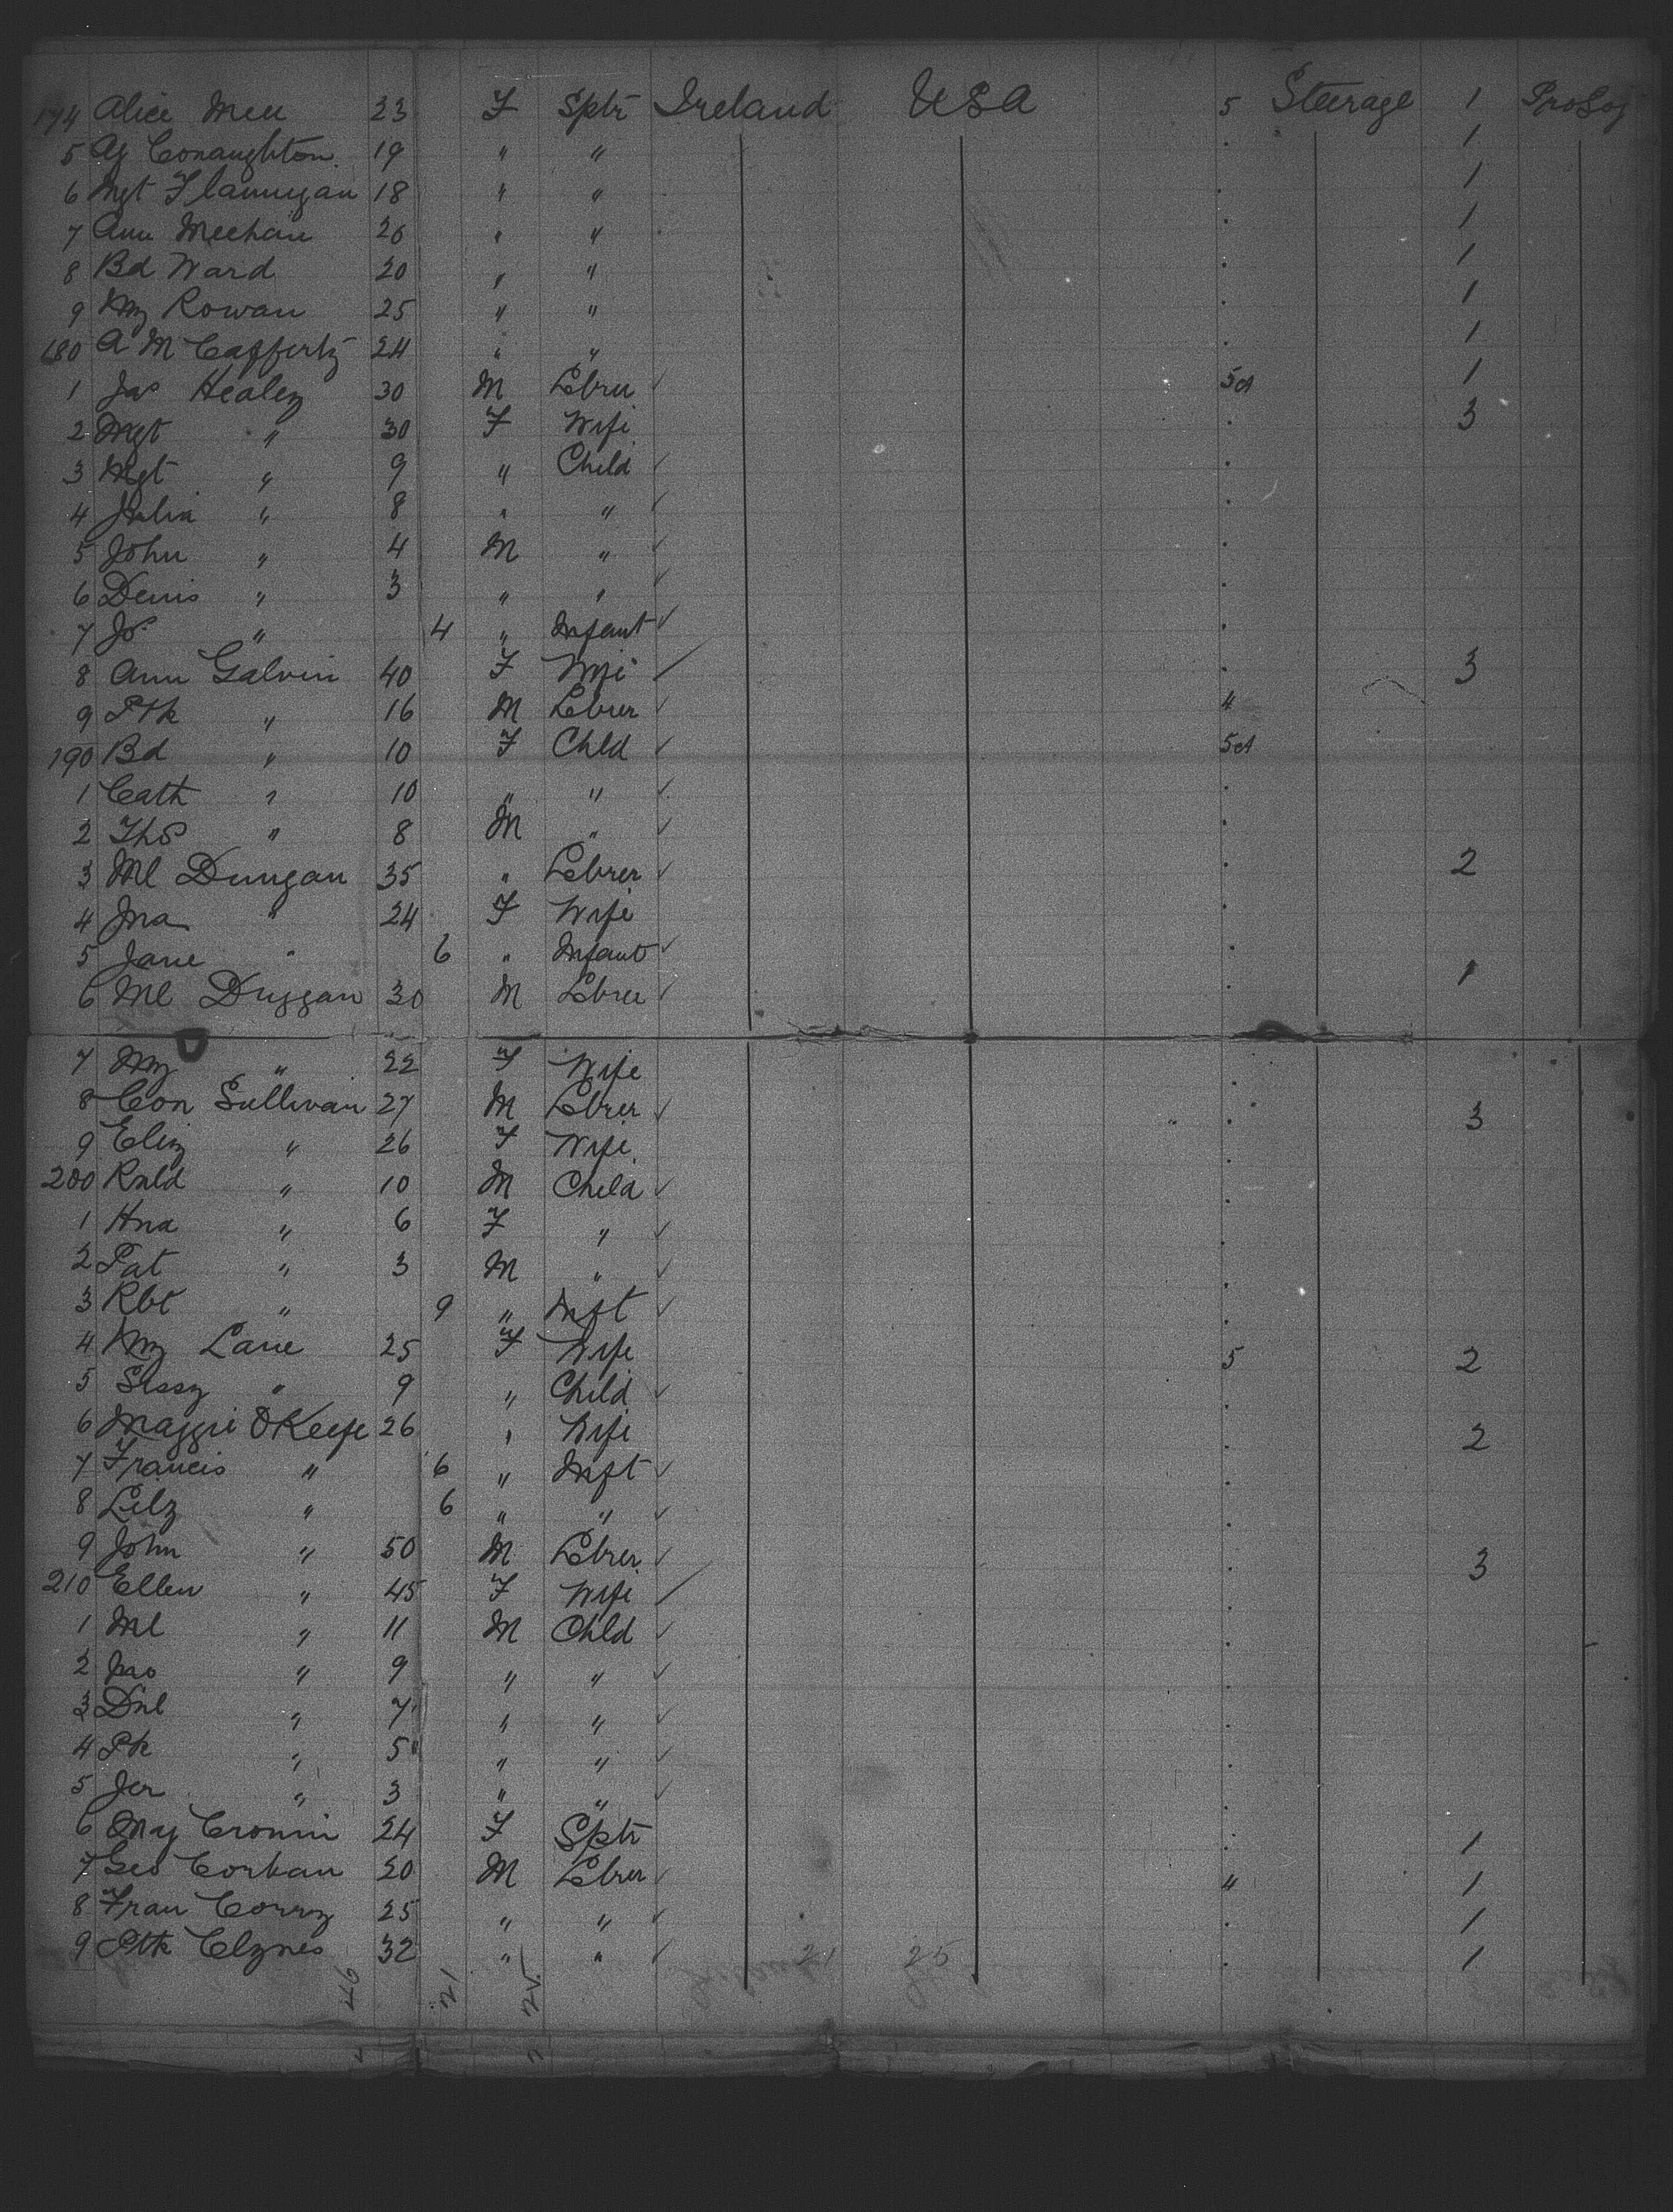 174 Alice Mee 23 F Sptr Ireland USA 5 Steerage 1 ProSoj
5 Ag Conaughton 19 " " . 1
6 Mgt Flannigan 18 " " . 1
7 Ann Meehan 26 " " . 1
8 Bd Ward 20 " " . 1
9 My Rowan 25 " " . 1
180 A McCafferty 24 " " . 1
1 Jas Healey 30 M Lbrer ✓ 5A 1
2 Mgt " 30 F Wife . 3
3 Mgt " 9 " Child ✓ .
4 Julia " 8 " " ✓ .
5 John " 4 M " ✓ .
6 Denis " 3 " " ✓ .
7 Jos " 4 " Infant ✓ .
8 Ann Galvin 40 F Wife ✓ . 3
9 Ptk " 16 M Lbrer ✓ 4
190 Bd " 10 F Chld ✓ 5A
1 Cath " 10 " " ✓ .
2 Thos " 8 M " ✓ .
3 Ml Dungan 35 " Lbrer ✓ . 2
4 Jna " 24 F Wife .
5 Jane " 6 " Infant ✓ .
6 Ml Duggan 30 M Lbrer ✓ . 1
7 My " 22 F Wife .
8 Con Sullivan 27 M Lbrer ✓ . 3
9 Eliz " 26 F Wife .
200 Rnld " 10 M Child ✓ .
1 Hna " 6 F " ✓ .
2 Pat " 3 M " ✓ .
3 Rbt " 9 " Inft ✓ .
4 My Lane 25 F Wife 5 2
5 Sissy " 9 " Child ✓ .
6 Maggie OKeefe 26 " Wife . 2
7 Francis " 6 " Inft ✓ .
8 Lily " 6 " " ✓ .
9 John " 50 M Lbrer ✓ . 3
210 Ellen " 45 F Wife ✓ .
1 Ml " 11 M Chld ✓ .
2 Jno " 9 " " ✓ .
3 Dnl " 7 " " ✓ .
4 Pk " 5 " " ✓ .
5 Jer " 3 " " ✓ .
6 My Cronin 24 F Sptr . 1
7 Geo Corban 20 M Lbrer ✓ 4 1
8 Fran Corry 25 " " ✓ . 1
9 Ptk Clynes 32 " " ✓ 21 25 . 1
46 21 25